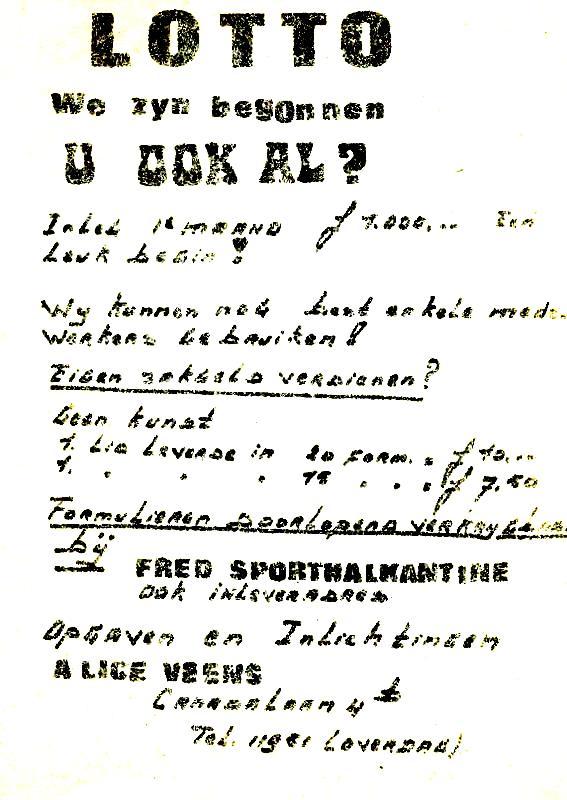 LOTTO
We zyn begonnen
U OOK AL?
Inleg 1e maand ƒ 1.000,-- Een
Leuk begin!
Wy kunnen nog best enkele mede-
werkers gebruiken!
Eigen zakgeld verdienen?
Geen kunst
1 Lid Leverde in 20 Form. = ƒ 10,--
1. " " " 15 " " = ƒ 7,50
Formulieren doorlopend verkrygbaar
bij
FRED SPORTHALKANTINE
Ook inleveradres
Opgaven en Inlichtingen
ALICE VEENS
Tel.